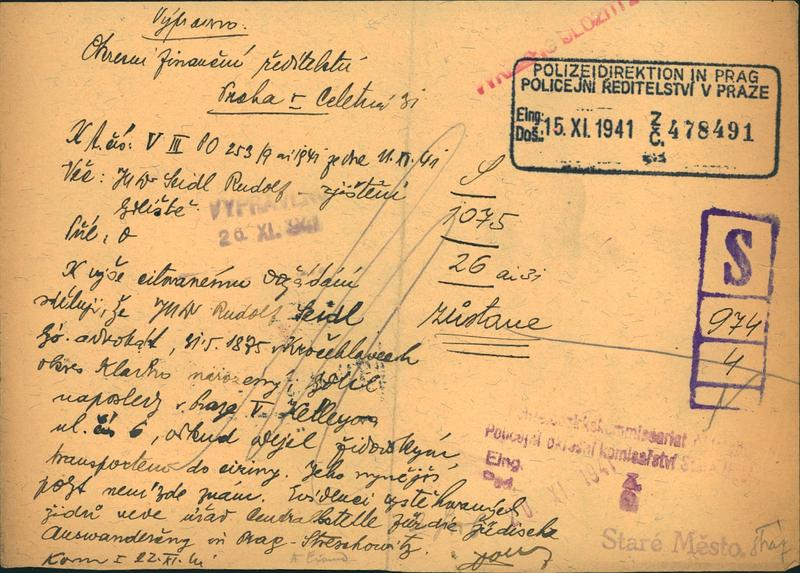 Výpraveno.
Okresní finanční ředitelství
Praha I Celetná 31
K t. čís: V III PO 253/9 ai 1941 ze dne 11.XI.41
Věc: JUDr Seidl Rudolf - zjištění
bydliště.
Příl: 0
K výše citovanému dožádání
sděluji, že JUDr Rudolf Seidl
býv. advokát, 31.5.1875 v Kročehlavech
okres Kladno narozený, bydlel
naposledy v Praze V.
ul. čís 6, odkud odejel židovským
transportem do ciziny. Jeho nynější
pobyt není zde znám. Evidenci vystěhovaných
židů vede úřad Centralstelle für die jüdische
Auswanderung in Prag - Streschowitz.
Kom I 22.XI.41
VYPRAVENO
26 XI. 1941
SLOŽIT
POLIZEIDIREKTION IN PRAG
POLICEJNÍ ŘEDITELSTVÍ V PRAZE
Eing.
Doš.: 15. XI. 1941 Z. Č. 478491
S
1075
26 ai 31
zůstane
S
974
4
Policejní okresní komisařství Staré Město
Eing.
Doš.
XI 1941
Z.
Č.
Staré Město.